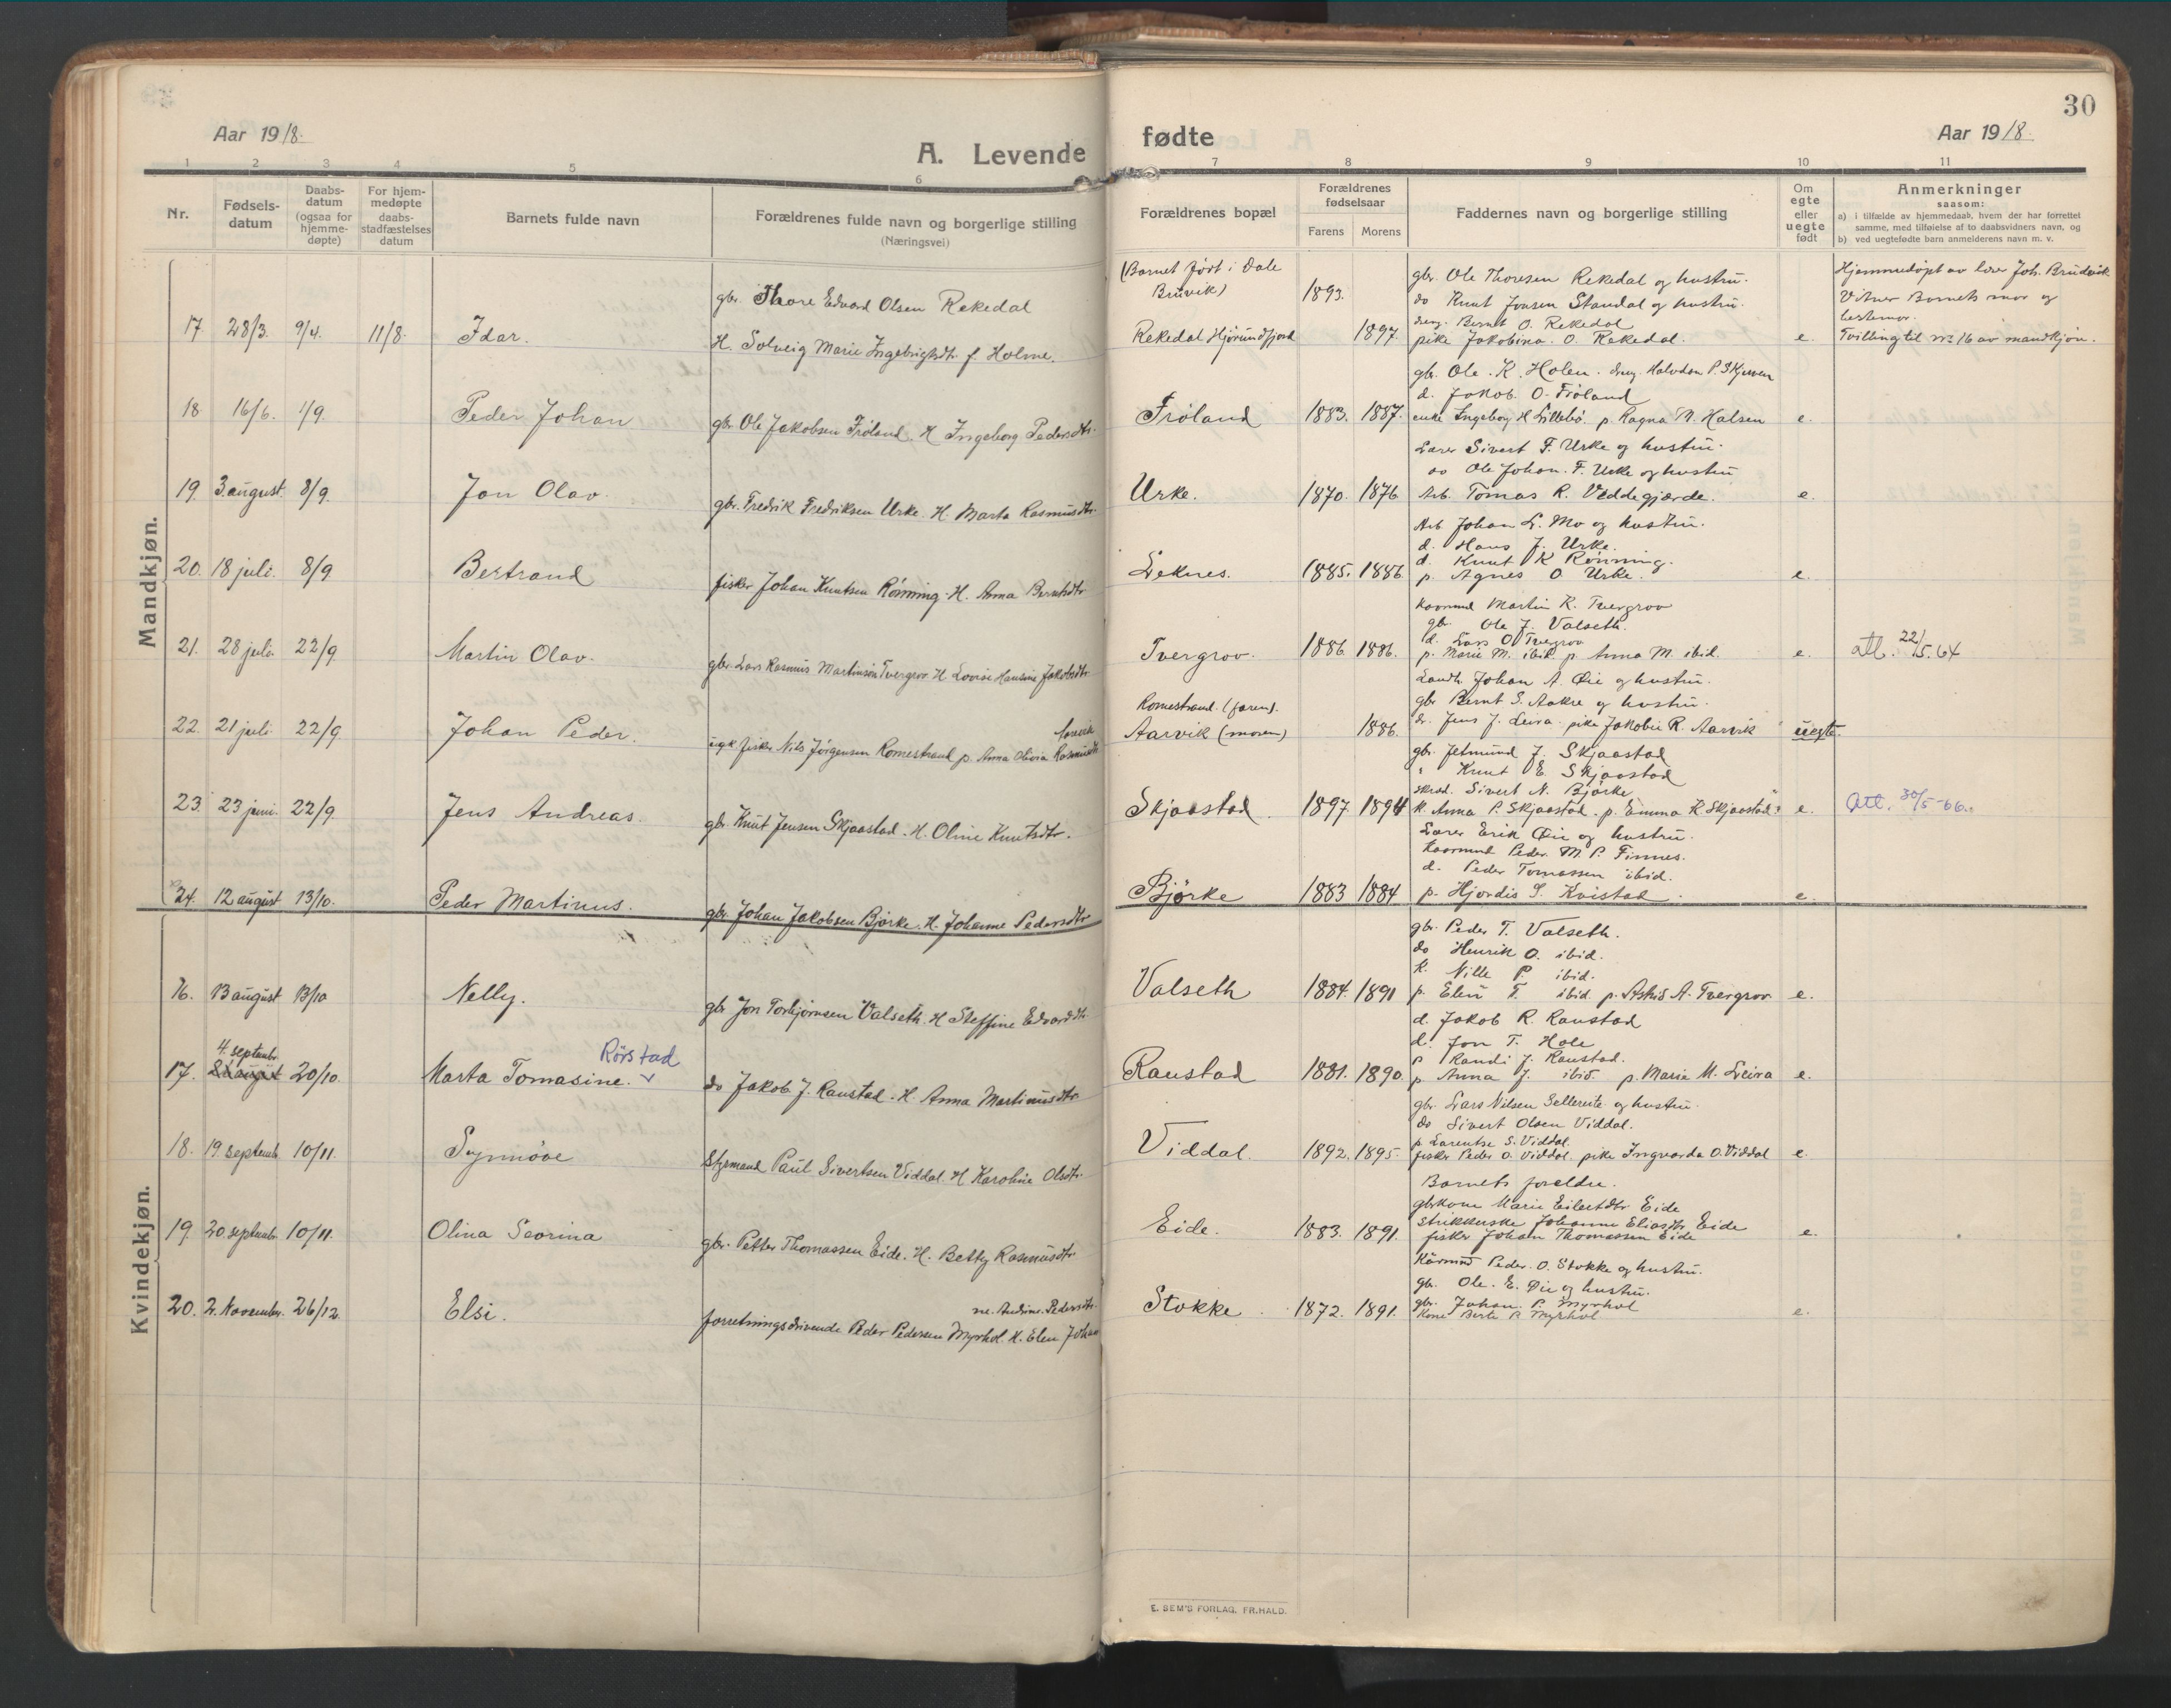 30
Aar 1918.
A. Levende
fødte
Aar 1918.
1 2 3 4 5 6 7 8 9 10 11
Nr.
Fødsels-
datum
Daabs-
datum
(ogsaa for
hjemme-
døpte)
For hjem-
medøpte
daabs-
stadfæstelses
datum
Barnets fulde navn
Forældrenes fulde navn og borgerlige stilling
(Næringsvei)
Forældrenes bopæl
Forældrenes
fødselsaar
Farens Morens
Faddernes navn og borgerlige stilling
Om
egte
eller
uegte
født
Anmerkninger
saasom:
a) i tilfælde av hjemmedaab, hvem der har forrettet
samme, med tilføielse af to daabsvidners navn, og
b) ved uegtefødte barn anmelderens navn m. v.
Mandkjøn.
17. 28/3. 9/4. 11/8. Idar.
gbr. Thore Edvard Olsen Rekedal
H. Solveig Marie Ingebrigtsdtr. f. Holme.
(Barnet født i Dale
Bruvik)
Rekedal Hjørundfjord
1893. 1897.
gbr. Ole Thoresen Rekedal og hustru.
do Knut Jonsen Standal og hustru.
dreng. Bernt O. Rekedal
pike Jakobina. O. Rekedal.
e.
Hjemmedøpt av lærer Joh. Brudvik
Vitner Barnets mor og
bestemor.
Tvilling til nr. 16 av mandkjøn.
18 16/6. 1/9. Peder Johan
gbr. Ole Jakobsen Frøland. H. Ingeborg Pedersdtr.
Frøland 1883. 1887.
gbr. Ole. K. Holen. dreng. Halvdan P. Skjersen
d. Jakob O. Frøland
enke Ingeborg H. Lillebø. p. Ragna M. Halsen
e.
19. 3. august. 8/9. Jon Olav.
gbr. Fredrik Fredriksen Urke. H. Marta Rasmusdtr.
Urke. 1870. 1876
Lærer Sivert F. Urke og hustru.
do Ole Johan. F. Urke og hustru
Arb. Tomas R. Veddegjærde.
e.
20. 18 juli. 8/9. Bertrand
fisker Johan Knutsen Rønning. H. Anna Berntsdtr
Leknes. 1885. 1886
Arb Johan L. Mo og hustru.
d. Hans J. Urke.
d. Knut K Rønning.
p. Agnes O. Urke.
e.
21. 28 juli. 22/9. Martin Olav.
gbr. Lars Rasmus Martinsen Tvergrov H. Lovise Hansine Jakobsdtr
Tvergrov. 1886 1886.
kaarmand Martin R. Tvergrov
gbr. Ole J. Valseth.
d. Lars O Tvergrov
p. Marie M. ibid p. Anna M. ibid.
e.
att. 22/5.64
22. 21 juli. 22/9. Johan Peder.
ugk fisker Nils Jørgensen Romestrand p. Anna Olivia Rasmusdtr Aarvik
Romestrand (faren).
Aarvik (moren) 1886.
Landh. Johan A. Øie og hustru.
gbr Bernt S. Aakre og hustru.
dr. Jens J. Leira. pike Jakobie R. Aarvik
uegte.
23. 23 juni. 22/9. Jens Andreas.
gbr. Knut Jensen Skjaastad. H. Oline Knutsdtr.
Skjaastad. 1897. 1894
gbr. Jetmund J. Skjaastad
" Knut E. Skjaastad
skræd. Sivert N. Bjørke
k. Anna P. Skjaastad. p. Emma K Skjaastad.
e.
att. 30/5-66.
24. 12 august 13/10. Peder Martinus.
gbr. Johan Jakobsen Bjørke. H. Johanne Pedersdtr.
Bjørke 1883 1884
Lærer Erik Øie og hustru.
Kaarmand Peder M. P. Finnes.
d. Peder Tomassen ibid.
p. Hjordis S. Kvistad.
e.
Kvindekjøn.
16. 13 august 13/10 Nelly.
gbr Jon Torbjørnsen Valseth. H Steffine Edvardsdtr.
Valseth 1884. 1891
gbr. Peder T. Valseth.
do Henrik O. ibid.
k. Nille P. ibid.
p. Elen T. ibid p. Astrid A. Tvergrov
e.
17. 4. septembr. 20/10. Marta Tomasine. Rørstad
do Jakob J. Raustad. H. Anna Martinusdtr.
Raustad 1881. 1890.
d. Jakob R. Raustad
d. Jon T. Hole
p Randi J. Raustad.
p Anna J. ibid. p. Marie M. Leira
e.
18. 19 septemb. 10/11. Synnøve
Styrmand Paul Sivertsen Viddal. H Karoline Olsdtr.
Viddal. 1892. 1895.
gbr. Lars Nilsen Sellereite og hustru.
do Sivert Olsen Viddal.
p Larentse S. Viddal.
fisker Peder O. Viddal. pike Ingvarda O. Viddal
e.
19. 20 septembr. 10/11. Olina Severina
gbr. Petter Thomassen Eide. H. Betty Rasmusdtr.
Eide. 1883. 1891.
Barnets foreldre.
gbrkone Marie Eilertsdtr Eide
strikkerske Johanne Eliasdtr Eide
fisker Johan Thomassen Eide
e.
20. 2. November. 26/12. Elsi.
forretningsdrivende Peder Pedersen Myrhol. H. Elen Johanne Andine. Pedersdtr.
Stokke. 1872. 1891.
Kårmnd Peder. O. Stokke og hustru.
gbr. Ole. E. Øie og hustru.
gbr. Johan. P. Myrhol
Kone Berte P. Myrhol
e.
E. SEM'S FORLAG, FR.HALD.